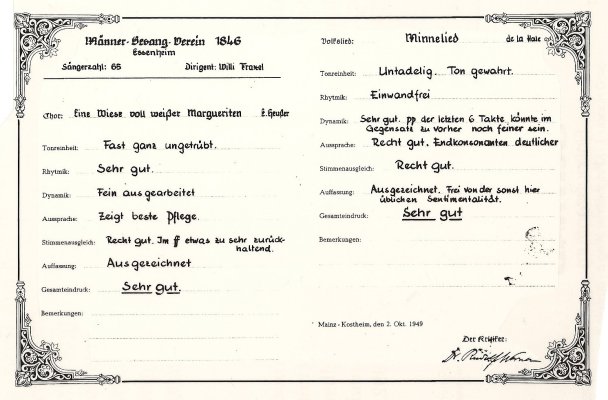 Männer-Gesang-Verein 1846
Essenheim
Sängerzahl: 66 Dirigent: Willi Fraxel
Chor: Eine Wiese voll weißer Margueriten E. Heußer
Tonreinheit: Fast ganz ungetrübt.
Rhytmik: Sehr gut.
Dynamik: Fein ausgearbeitet
Aussprache: Zeigt beste Pflege.
Stimmenausgleich: Recht gut. Im ff etwas zu sehr zurück-
haltend.
Auffassung: Ausgezeichnet
Gesamteindruck: Sehr gut.
Bemerkungen:
Volkslied: Minnelied de la Hale
Tonreinheit: Untadelig. Ton gewahrt.
Rhytmik: Einwandfrei
Dynamik: Sehr gut. pp der letzten 6 Takte könnte im
Gegensatz zu vorher noch feiner sein.
Aussprache: Recht gut. Endkonsonanten deutlicher
Stimmenausgleich: Recht gut.
Auffassung: Ausgezeichnet. Frei von der sonst hier
üblichen Sentimentalität.
Gesamteindruck: Sehr gut
Bemerkungen:
Mainz-Kostheim, den 2. Okt. 1949
Der Kritiker:
Dr. Rudolf